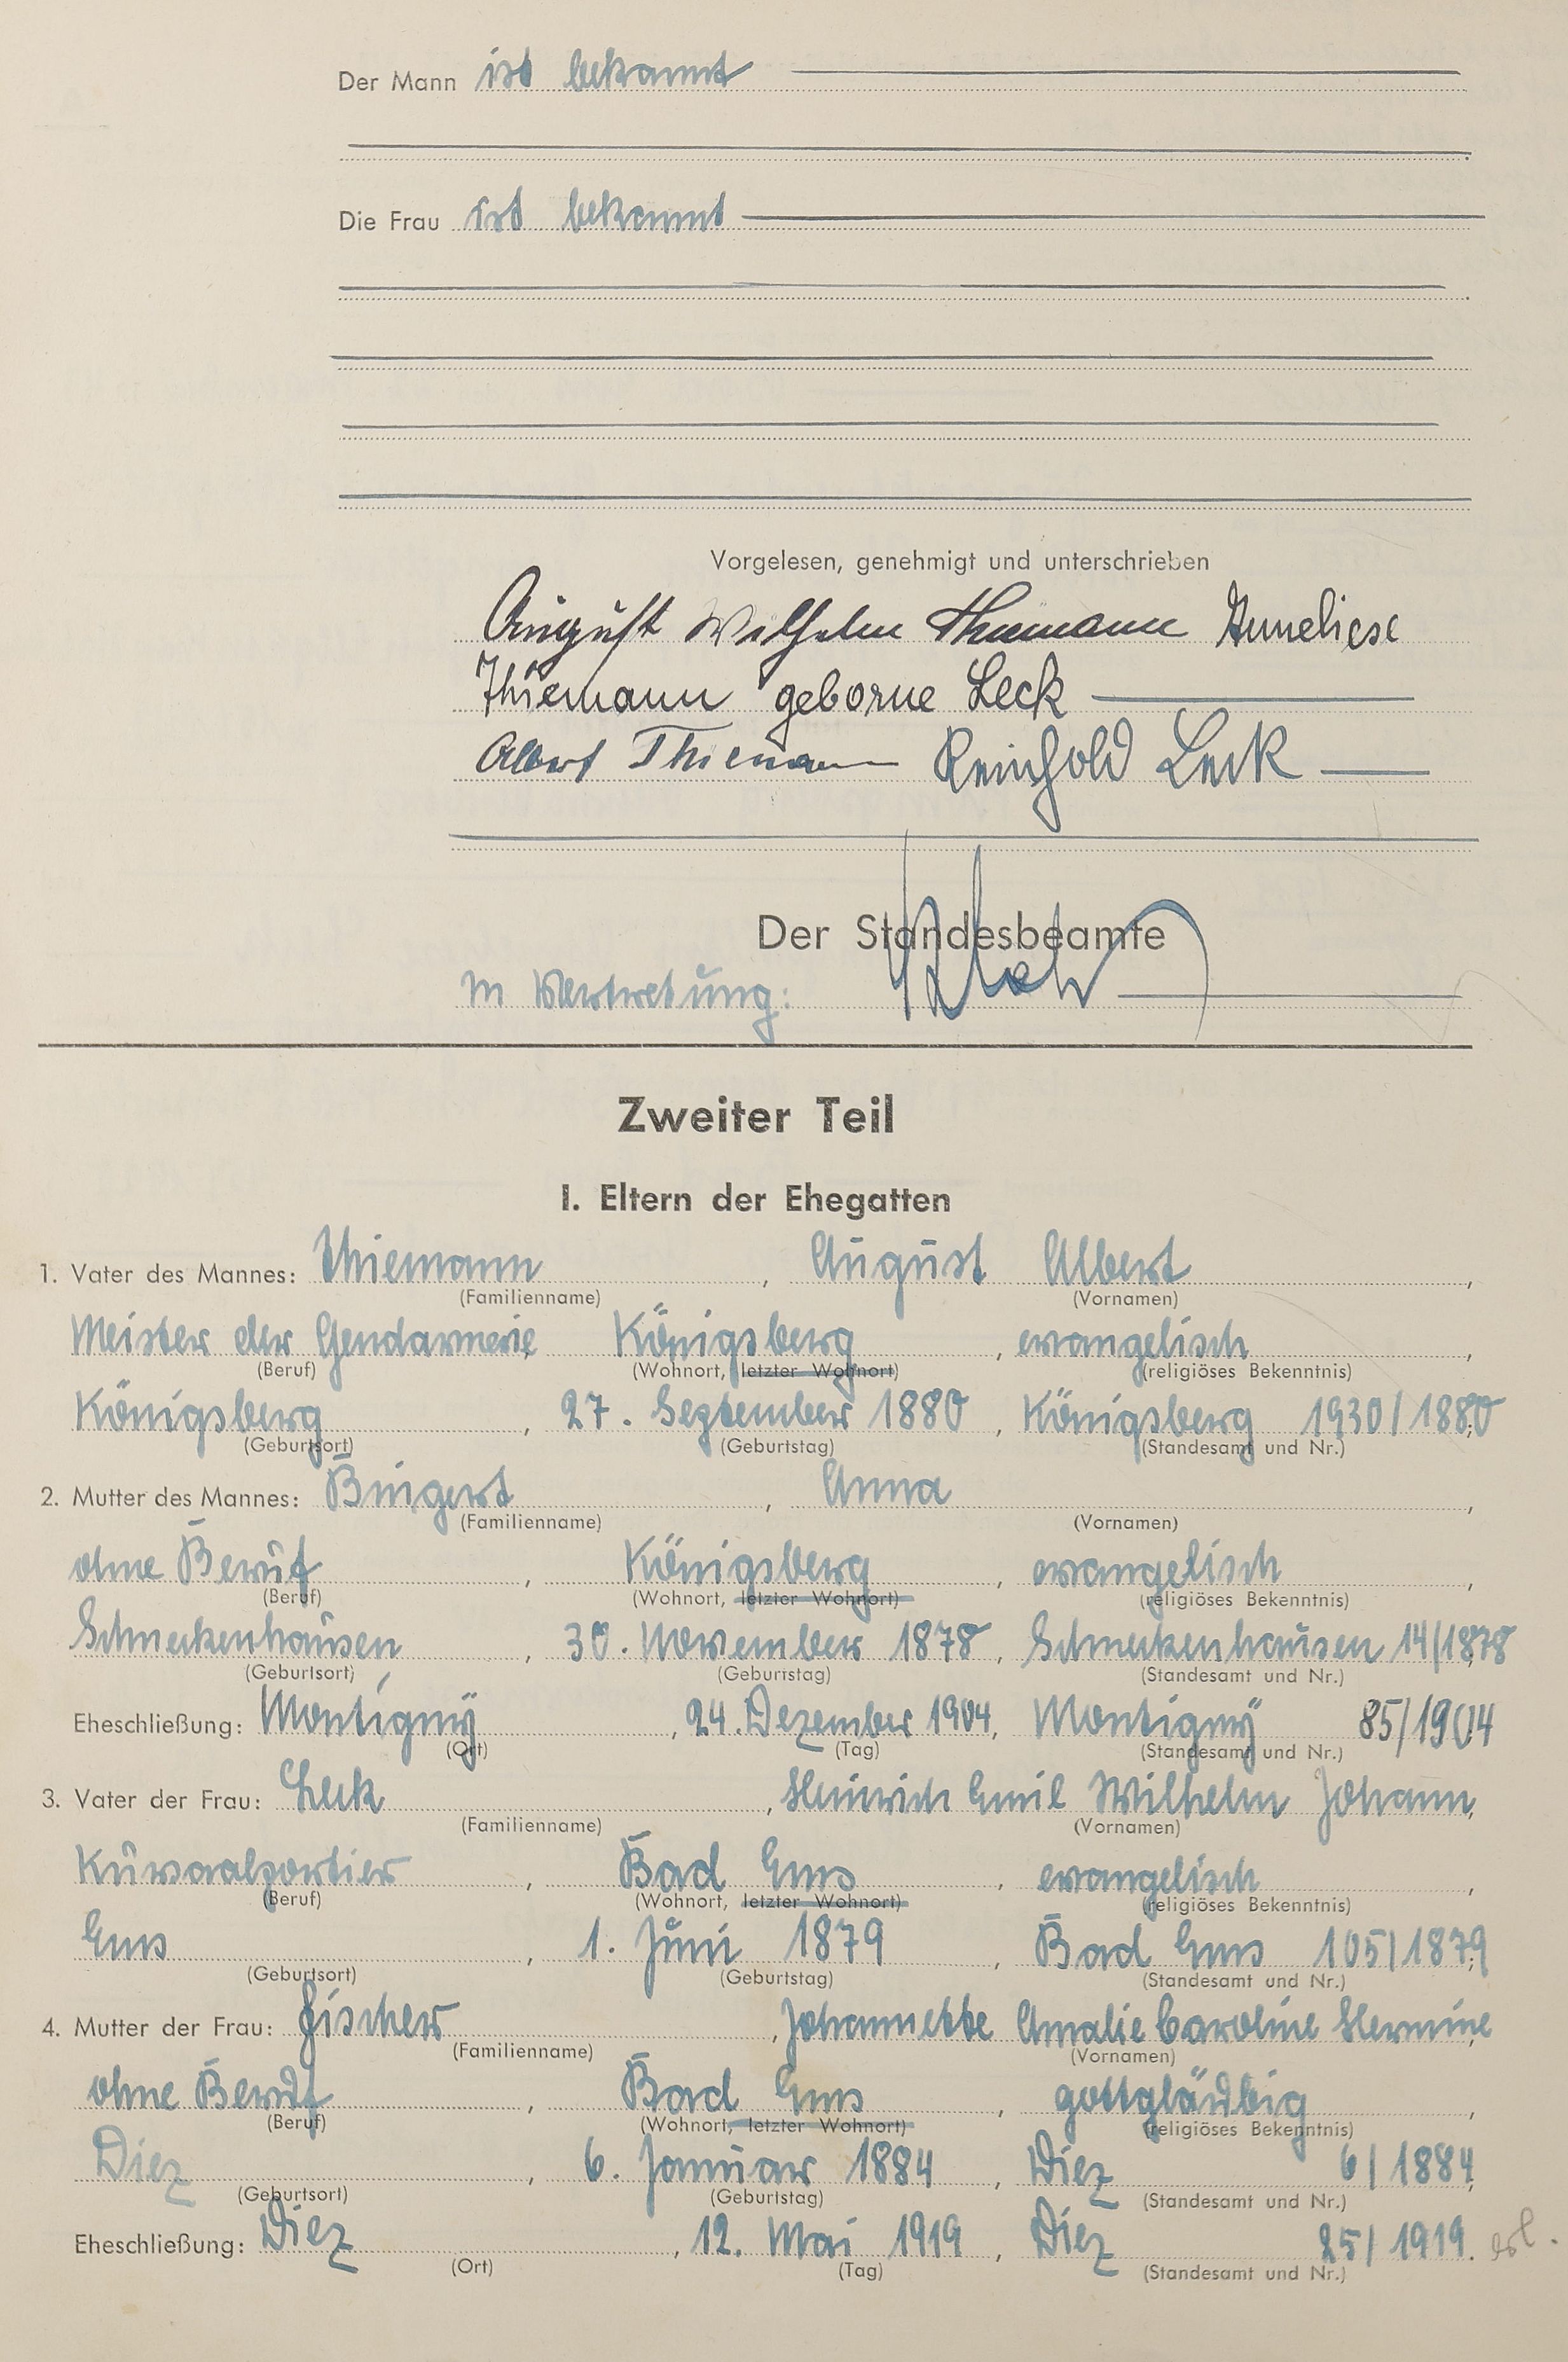 Der Mann ist bekannt
Die Frau ist bekannt
Vorgelesen, genehmigt und unterschrieben
August Wilhelm Thiemann Anneliese
Thiemann geborne Leck
Albert Thiemann Reinhold Leck
Der Standesbeamte
In Vertretung:
Zweiter Teil
I. Eltern der Ehegatten
1. Vater des Mannes: Thiemann, August Albert,
(Familienname) (Vornamen)
Meister der Gendarmerie, Königsberg, evangelisch,
(Beruf) (Wohnort, letzter Wohnort) (religiöses Bekenntnis)
Königsberg, 27. September 1880, Königsberg 1930/1880,
(Geburtsort) (Geburtstag) (Standesamt und Nr.)
2. Mutter des Mannes: Bingert, Anna,
(Familienname) (Vornamen)
ohne Beruf, Königsberg, evangelisch,
(Beruf) (Wohnort, letzter Wohnort) (religiöses Bekenntnis)
Schneckenhausen, 30. November 1878, Schneckenhausen 14/1878,
(Geburtsort) (Geburtstag) (Standesamt und Nr.)
Eheschließung: Montigny, 24. Dezember 1904, Montigny 85/1904
(Ort) (Tag) (Standesamt und Nr.)
3. Vater der Frau: Leck, Heinrich Emil Wilhelm Johann,
(Familienname) (Vornamen)
Kursaalportier, Bad Ems, evangelisch,
(Beruf) (Wohnort, letzter Wohnort) (religiöses Bekenntnis)
Ems, 1. Juni 1879, Bad Ems 105/1879,
(Geburtsort) (Geburtstag) (Standesamt und Nr.)
4. Mutter der Frau: Fischer, Johannette Amalie Caroline Hermine,
(Familienname) (Vornamen)
ohne Beruf, Bad Ems, gottgläubig,
(Beruf) (Wohnort, letzter Wohnort) (religiöses Bekenntnis)
Diez, 6. Januar 1884, Diez 6/1884,
(Geburtsort) (Geburtstag) (Standesamt und Nr.)
Eheschließung: Diez, 12. Mai 1919, Diez 25/1919.
(Ort) (Tag) (Standesamt und Nr.)